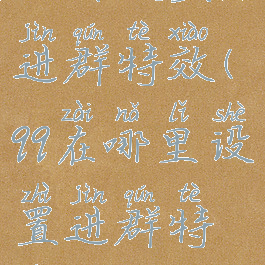 jìn qún tè xiào
进群特效(
zài nǎ lǐ shè
qq在哪里设
zhì jìn qún tè
置进群特